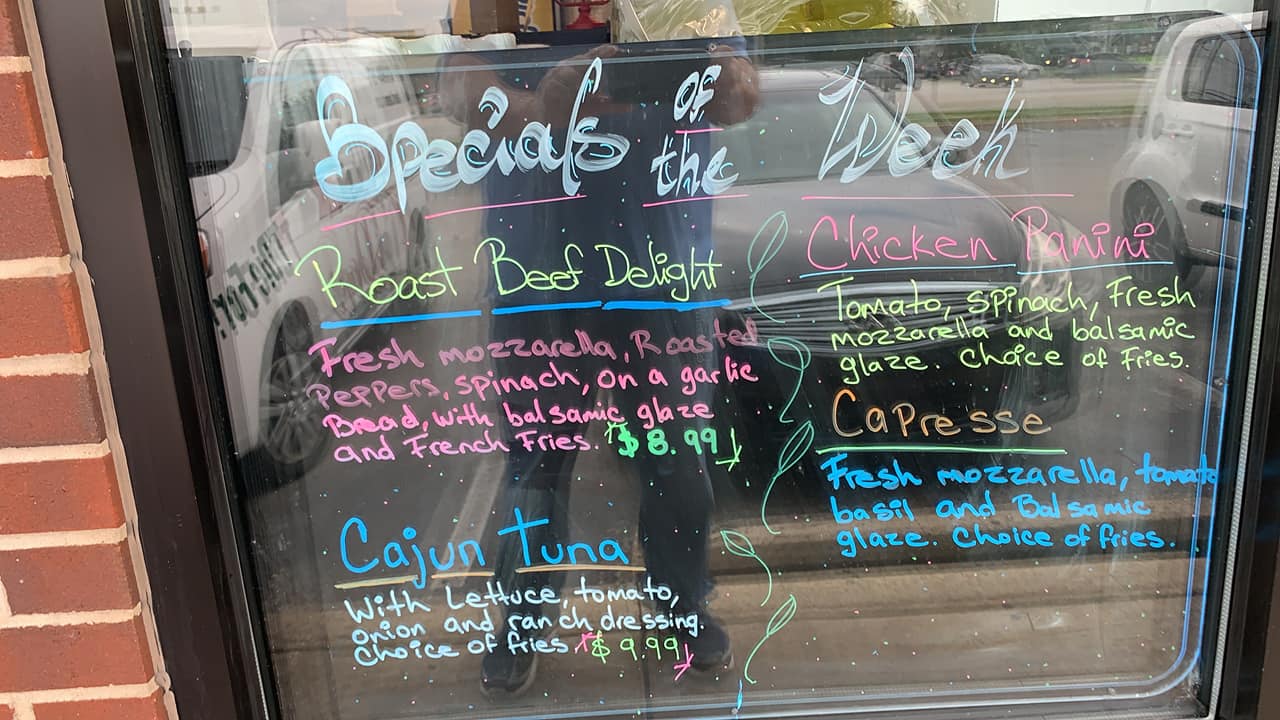 Specials of the Week
Roast Beef Delight
Fresh mozzarella, Roasted
Peppers, spinach, on a garlic
Bread, with balsamic glaze
and French Fries. $8.99
Cajun Tuna
With Lettuce, tomato,
onion and ranch dressing.
Choice of fries $9.99
Chicken Panini
Tomato, spinach, Fresh
mozzarella and balsamic
glaze. Choice of Fries.
Capresse
Fresh mozzarella, tomato
basil and Balsamic
glaze. Choice of fries.